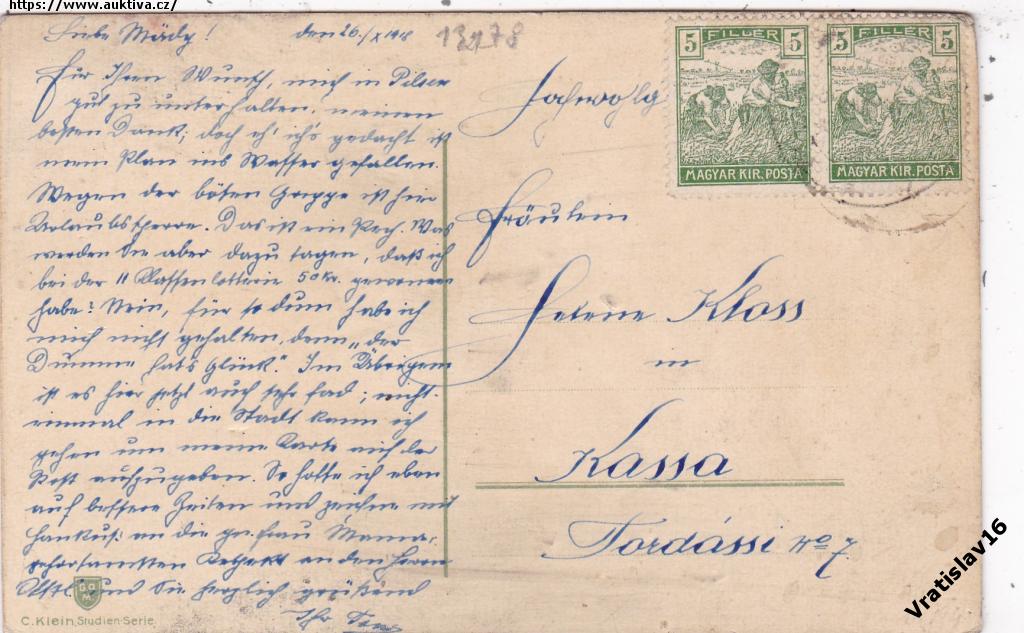 https://www.auktiva.cz/
Liebe Mädy! den 26./X 1918
13178
Für Ihren Wunsch, mich in Pilsen
gut zu unterhalten, meinen
besten Dank; doch eh' ich's gedacht ist
mein Plan ins Wasser gefallen.
Wegen der bösen Grippe ist hier
Urlaubssperre. Das ist ein Pech. Was
werden Sie aber dazu sagen, daß ich
bei der II Klassenlotterie 50 Kr. gewonnen
habe? Nein, für so dum habe ich
mich nicht gehalten, denn „der
Dumme hat's Glück". Im Übrigen
ist es hier jetzt auch sehr fad; nicht
einmal in die Stadt kann ich
gehen um meine Karte auf der
Post aufzugeben. So hoffe ich eben
auf bessere Zeiten und zeichne mit
Handkuß an die gn. Frau Mama,
gehorsamsten Respekt an den Herrn
und Sie herzlich grüßend
Ihr
5 FILLÉR 5
MAGYAR KIR. POSTA
5 FILLÉR 5
MAGYAR KIR. POSTA
Fräulein
Helene Kloss
in
Kassa
Tordássi No 7.
G.O.M.
C. Klein, Studien-Serie.
Vratislav16